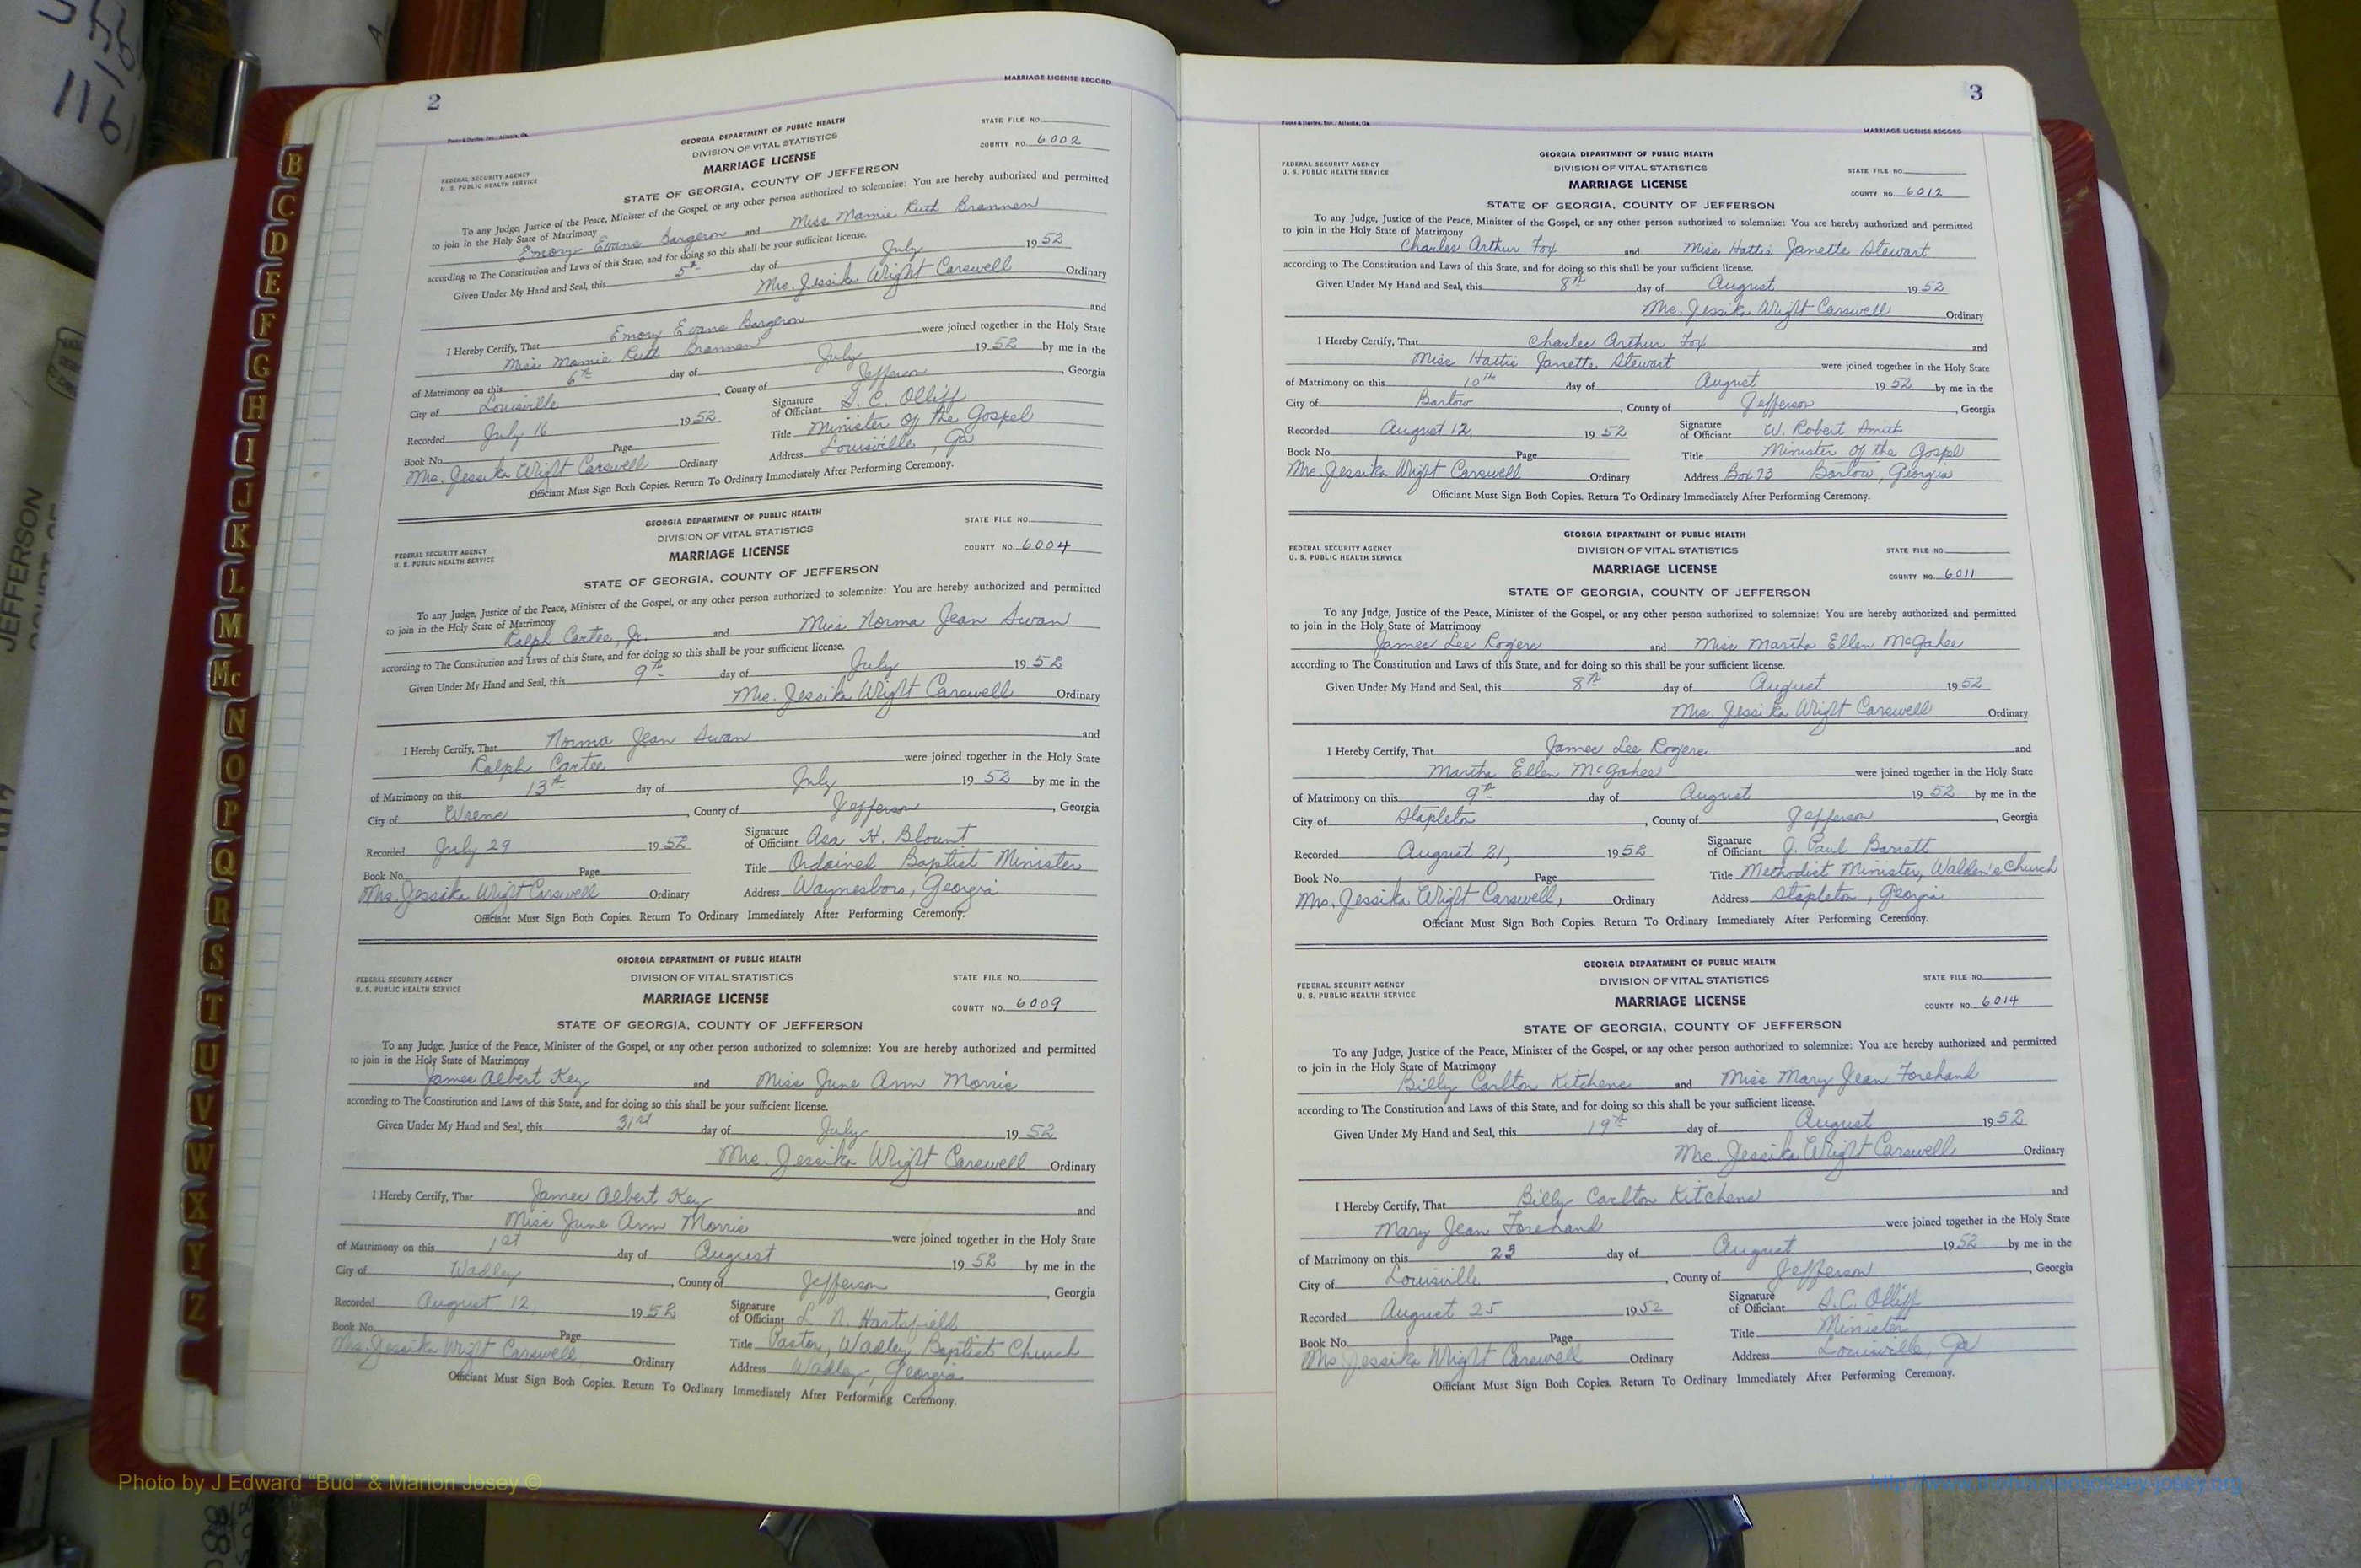 2
MARRIAGE LICENSE RECORD
Foote & Davies, Inc., Atlanta, Ga.
GEORGIA DEPARTMENT OF PUBLIC HEALTH
DIVISION OF VITAL STATISTICS
MARRIAGE LICENSE
STATE FILE NO.
COUNTY NO. 6002
FEDERAL SECURITY AGENCY
U. S. PUBLIC HEALTH SERVICE
STATE OF GEORGIA, COUNTY OF JEFFERSON
To any Judge, Justice of the Peace, Minister of the Gospel, or any other person authorized to solemnize: You are hereby authorized and permitted
to join in the Holy State of Matrimony
Emory Evans Bargeron and Miss Mamie Ruth Brannen
according to The Constitution and Laws of this State, and for doing so this shall be your sufficient license.
Given Under My Hand and Seal, this 5th day of July 1952
Mrs. Jessika Wright Carswell Ordinary
I Hereby Certify, That Emory Evans Bargeron and
Miss Mamie Ruth Brannen were joined together in the Holy State
of Matrimony on this 6th day of July 1952 by me in the
City of Louisville, County of Jefferson, Georgia
Recorded July 16 1952 Signature of Officiant S. C. Olliff
Book No. Page Title Minister of the Gospel
Mrs. Jessika Wright Carswell Ordinary Address Louisville, Ga
Officiant Must Sign Both Copies. Return To Ordinary Immediately After Performing Ceremony.
GEORGIA DEPARTMENT OF PUBLIC HEALTH
DIVISION OF VITAL STATISTICS
MARRIAGE LICENSE
STATE FILE NO.
COUNTY NO. 6004
FEDERAL SECURITY AGENCY
U. S. PUBLIC HEALTH SERVICE
STATE OF GEORGIA, COUNTY OF JEFFERSON
To any Judge, Justice of the Peace, Minister of the Gospel, or any other person authorized to solemnize: You are hereby authorized and permitted
to join in the Holy State of Matrimony
Ralph Cartee, Jr. and Miss Norma Jean Swan
according to The Constitution and Laws of this State, and for doing so this shall be your sufficient license.
Given Under My Hand and Seal, this 9th day of July 1952
Mrs. Jessika Wright Carswell Ordinary
I Hereby Certify, That Norma Jean Swan and
Ralph Cartee were joined together in the Holy State
of Matrimony on this 13th day of July 1952 by me in the
City of Wrens, County of Jefferson, Georgia
Recorded July 29 1952 Signature of Officiant Asa H. Blount
Book No. Page Title Ordained Baptist Minister
Mrs. Jessika Wright Carswell Ordinary Address Waynesboro, Georgia
Officiant Must Sign Both Copies. Return To Ordinary Immediately After Performing Ceremony.
GEORGIA DEPARTMENT OF PUBLIC HEALTH
DIVISION OF VITAL STATISTICS
MARRIAGE LICENSE
STATE FILE NO.
COUNTY NO. 6009
FEDERAL SECURITY AGENCY
U. S. PUBLIC HEALTH SERVICE
STATE OF GEORGIA, COUNTY OF JEFFERSON
To any Judge, Justice of the Peace, Minister of the Gospel, or any other person authorized to solemnize: You are hereby authorized and permitted
to join in the Holy State of Matrimony
James Albert Key and Miss June Ann Morris
according to The Constitution and Laws of this State, and for doing so this shall be your sufficient license.
Given Under My Hand and Seal, this 31rd day of July 1952
Mrs. Jessika Wright Carswell Ordinary
I Hereby Certify, That James Albert Key and
Miss June Ann Morris were joined together in the Holy State
of Matrimony on this 1st day of August 1952 by me in the
City of Wadley, County of Jefferson, Georgia
Recorded August 12, 1952 Signature of Officiant L. N. Hartsfield
Book No. Page Title Pastor, Wadley Baptist Church
Mrs. Jessika Wright Carswell Ordinary Address Wadley, Georgia
Officiant Must Sign Both Copies. Return To Ordinary Immediately After Performing Ceremony.
3
Foote & Davies, Inc., Atlanta, Ga.
MARRIAGE LICENSE RECORD
GEORGIA DEPARTMENT OF PUBLIC HEALTH
DIVISION OF VITAL STATISTICS
MARRIAGE LICENSE
STATE FILE NO.
COUNTY NO. 6012
FEDERAL SECURITY AGENCY
U. S. PUBLIC HEALTH SERVICE
STATE OF GEORGIA, COUNTY OF JEFFERSON
To any Judge, Justice of the Peace, Minister of the Gospel, or any other person authorized to solemnize: You are hereby authorized and permitted
to join in the Holy State of Matrimony
Charles Arthur Fox and Miss Hattie Janette Stewart
according to The Constitution and Laws of this State, and for doing so this shall be your sufficient license.
Given Under My Hand and Seal, this 8th day of August 1952
Mrs. Jessika Wright Carswell Ordinary
I Hereby Certify, That Charles Arthur Fox and
Miss Hattie Janette Stewart were joined together in the Holy State
of Matrimony on this 10th day of August 1952 by me in the
City of Bartow, County of Jefferson, Georgia
Recorded August 12, 1952 Signature of Officiant W. Robert Smith
Book No. Page Title Minister of the Gospel
Mrs. Jessika Wright Carswell Ordinary Address Box 73 Bartow, Georgia
Officiant Must Sign Both Copies. Return To Ordinary Immediately After Performing Ceremony.
GEORGIA DEPARTMENT OF PUBLIC HEALTH
DIVISION OF VITAL STATISTICS
MARRIAGE LICENSE
STATE FILE NO.
COUNTY NO. 6011
FEDERAL SECURITY AGENCY
U. S. PUBLIC HEALTH SERVICE
STATE OF GEORGIA, COUNTY OF JEFFERSON
To any Judge, Justice of the Peace, Minister of the Gospel, or any other person authorized to solemnize: You are hereby authorized and permitted
to join in the Holy State of Matrimony
James Lee Rogers and Miss Martha Ellen McGahee
according to The Constitution and Laws of this State, and for doing so this shall be your sufficient license.
Given Under My Hand and Seal, this 8th day of August 1952
Mrs. Jessika Wright Carswell Ordinary
I Hereby Certify, That James Lee Rogers and
Martha Ellen McGahee were joined together in the Holy State
of Matrimony on this 9th day of August 1952 by me in the
City of Stapleton, County of Jefferson, Georgia
Recorded August 21, 1952 Signature of Officiant J. Paul Barrett
Book No. Page Title Methodist Minister, Walden's Church
Mrs. Jessika Wright Carswell, Ordinary Address Stapleton, Georgia
Officiant Must Sign Both Copies. Return To Ordinary Immediately After Performing Ceremony.
GEORGIA DEPARTMENT OF PUBLIC HEALTH
DIVISION OF VITAL STATISTICS
MARRIAGE LICENSE
STATE FILE NO.
COUNTY NO. 6014
FEDERAL SECURITY AGENCY
U. S. PUBLIC HEALTH SERVICE
STATE OF GEORGIA, COUNTY OF JEFFERSON
To any Judge, Justice of the Peace, Minister of the Gospel, or any other person authorized to solemnize: You are hereby authorized and permitted
to join in the Holy State of Matrimony
Billy Carlton Kitchens and Miss Mary Jean Forehand
according to The Constitution and Laws of this State, and for doing so this shall be your sufficient license.
Given Under My Hand and Seal, this 19th day of August 1952
Mrs. Jessika Wright Carswell Ordinary
I Hereby Certify, That Billy Carlton Kitchens and
Mary Jean Forehand were joined together in the Holy State
of Matrimony on this 23 day of August 1952 by me in the
City of Louisville, County of Jefferson, Georgia
Recorded August 25 1952 Signature of Officiant S.C. Olliff
Book No. Page Title Minister
Mrs Jessika Wright Carswell Ordinary Address Louisville, Ga
Officiant Must Sign Both Copies. Return To Ordinary Immediately After Performing Ceremony.
B
C
D
E
F
G
H
I
J
K
L
M
Mc
N
O
P
Q
R
S
T
U
V
W
X
Y
Z
JEFFERSON
Photo by J Edward "Bud" & Marion Josey ©